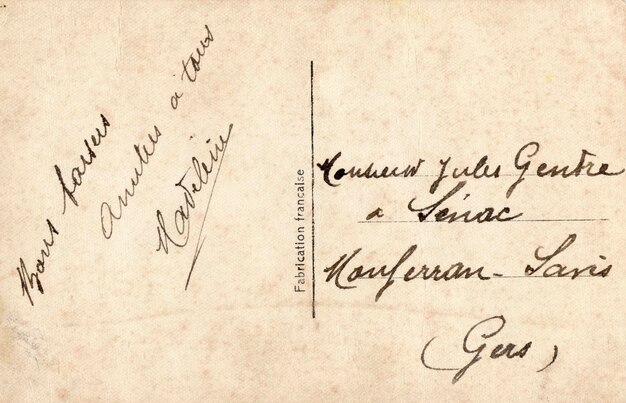 Bons baisers
Amitiés à tous
Madeleine
Fabrication française
Monsieur Jules Gendre
à Sénac
Monferran-Savès
(Gers)